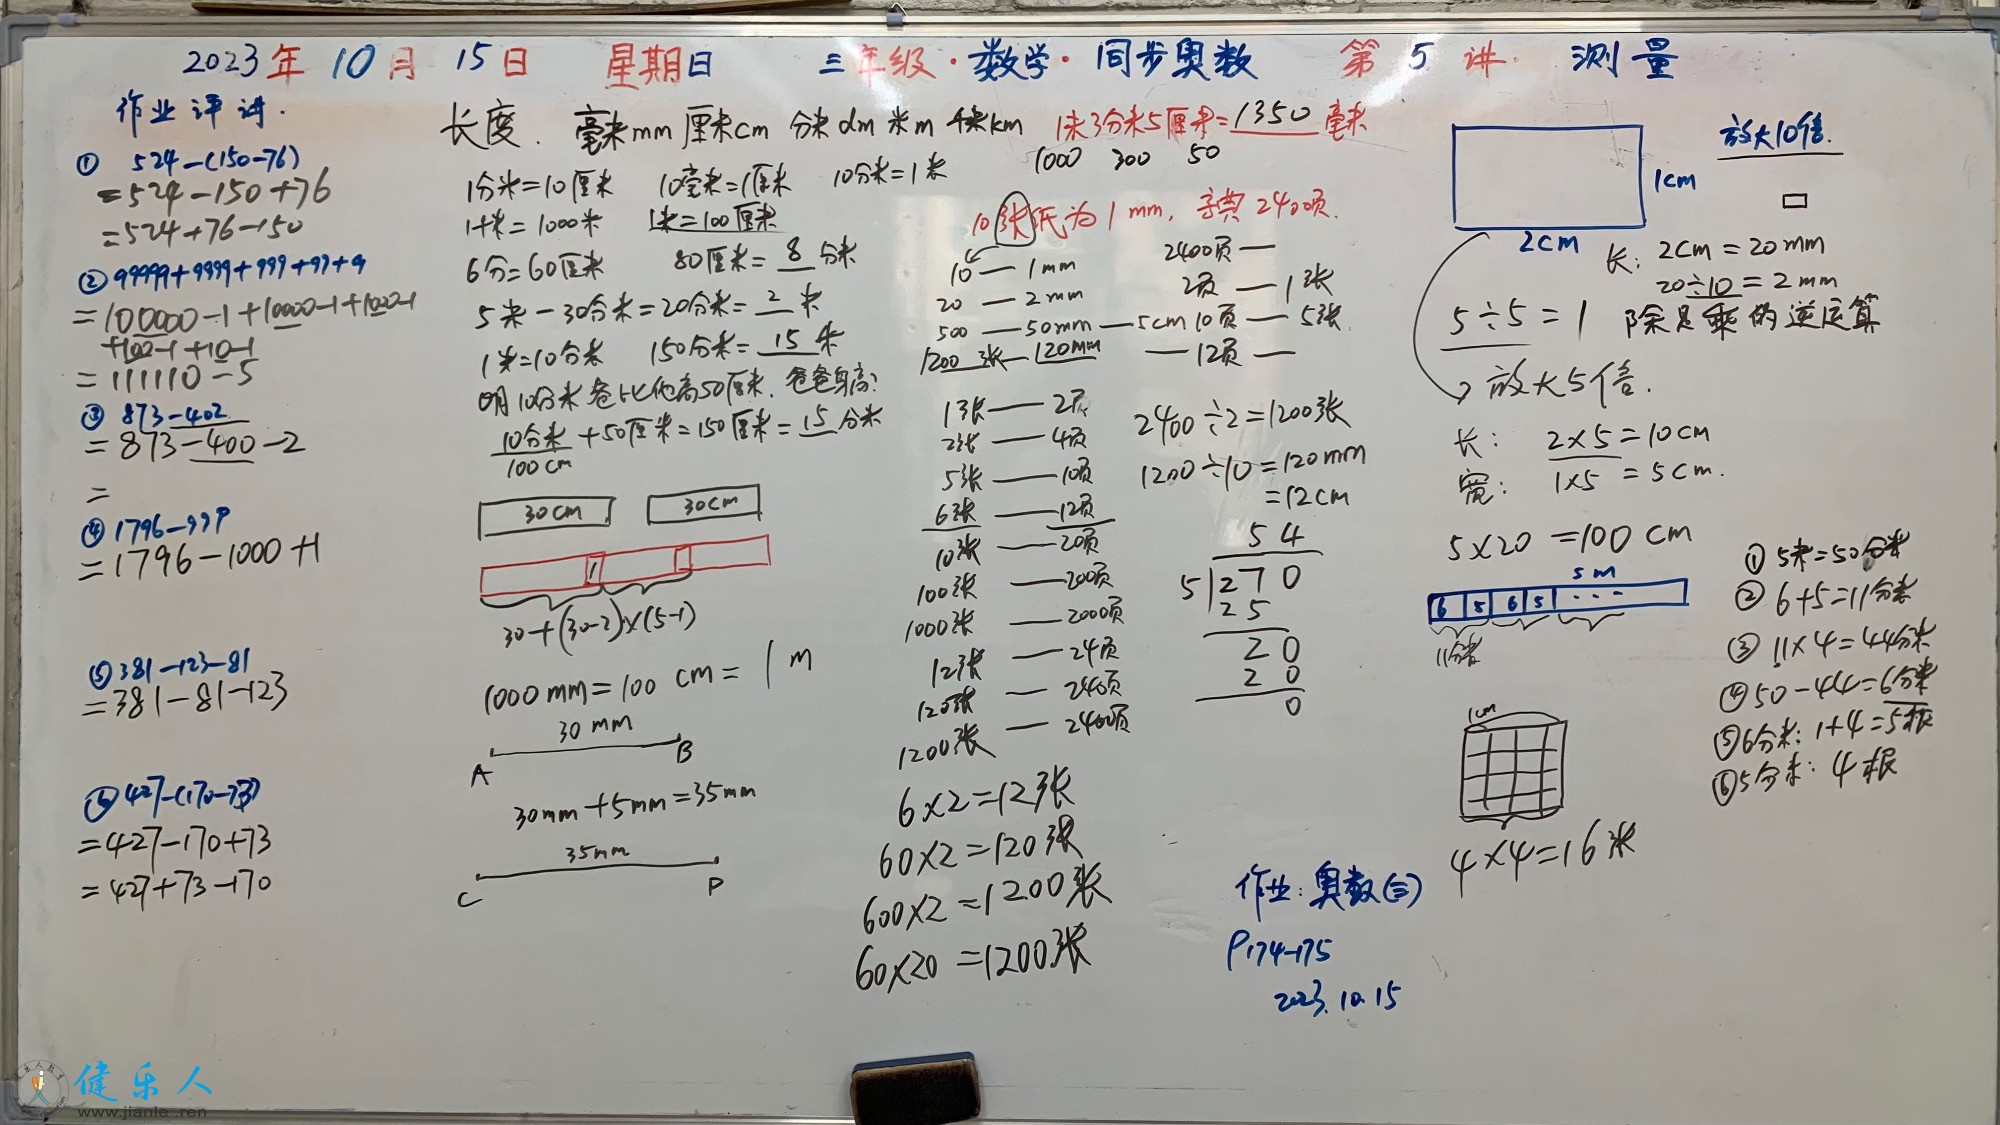 2023年10月15日 星期日 三年级·数学·同步奥数 第5讲 测量
作业评讲.
① 524-(150-76)
=524-150+76
=524+76-150
② 99999+9999+999+99+9
=100000-1+10000-1+1000-1
+100-1+10-1
=111110-5
③ 873-402
=873-400-2
=
④ 1796-999
=1796-1000+1
⑤ 381-123-81
=381-81-123
⑥ 427-(170-73)
=427-170+73
=427+73-170
长度. 毫米mm 厘米cm 分米dm 米m 千米km
1分米=10厘米 10毫米=1厘米 10分米=1米
1千米=1000米 1米=100厘米
6分=60厘米 80厘米=8分米
5米-30分米=20分米=2米
1米=10分米 150分米=15米
明10分米爸比他高50厘米.爸爸身高?
10分米+50厘米=150厘米=15分米
100cm
30cm 30cm
1
30+(30-2)×(5-1)
1000mm=100cm=1m
30mm
A B
30mm+5mm=35mm
35mm
C D
1米3分米5厘米=1350毫米
1000 300 50
10张纸为1mm,字典2400页.
10—1mm
20—2mm
500—50mm—5cm
1200张—120mm
2400页—
2页—1张
10页—5张
—12页—
1张—2页
2张—4页
5张—10页
6张—12页
10张—20页
100张—200页
1000张—2000页
12张—24页
120张—240页
1200张—2400页
6×2=12张
60×2=120张
600×2=1200张
60×20=1200张
2400÷2=1200张
1200÷10=120mm
=12cm
54
5 270
25
20
20
0
作业:奥数(三)
P174-175
2023.10.15
1cm
2cm
放大10倍.
长: 2cm=20mm
20÷10=2mm
5÷5=1 除是乘的逆运算
放大5倍.
长: 2×5=10cm
宽: 1×5=5cm.
5×20=100cm
5m
6 5 6 5 ...
11分米
1cm
4×4=16张
① 5米=50分米
② 6+5=11分米
③ 11×4=44分米
④ 50-44=6分米
⑤ 6分米:1+4=5根
⑥ 5分米:4根
健乐人
www.jianle.ren